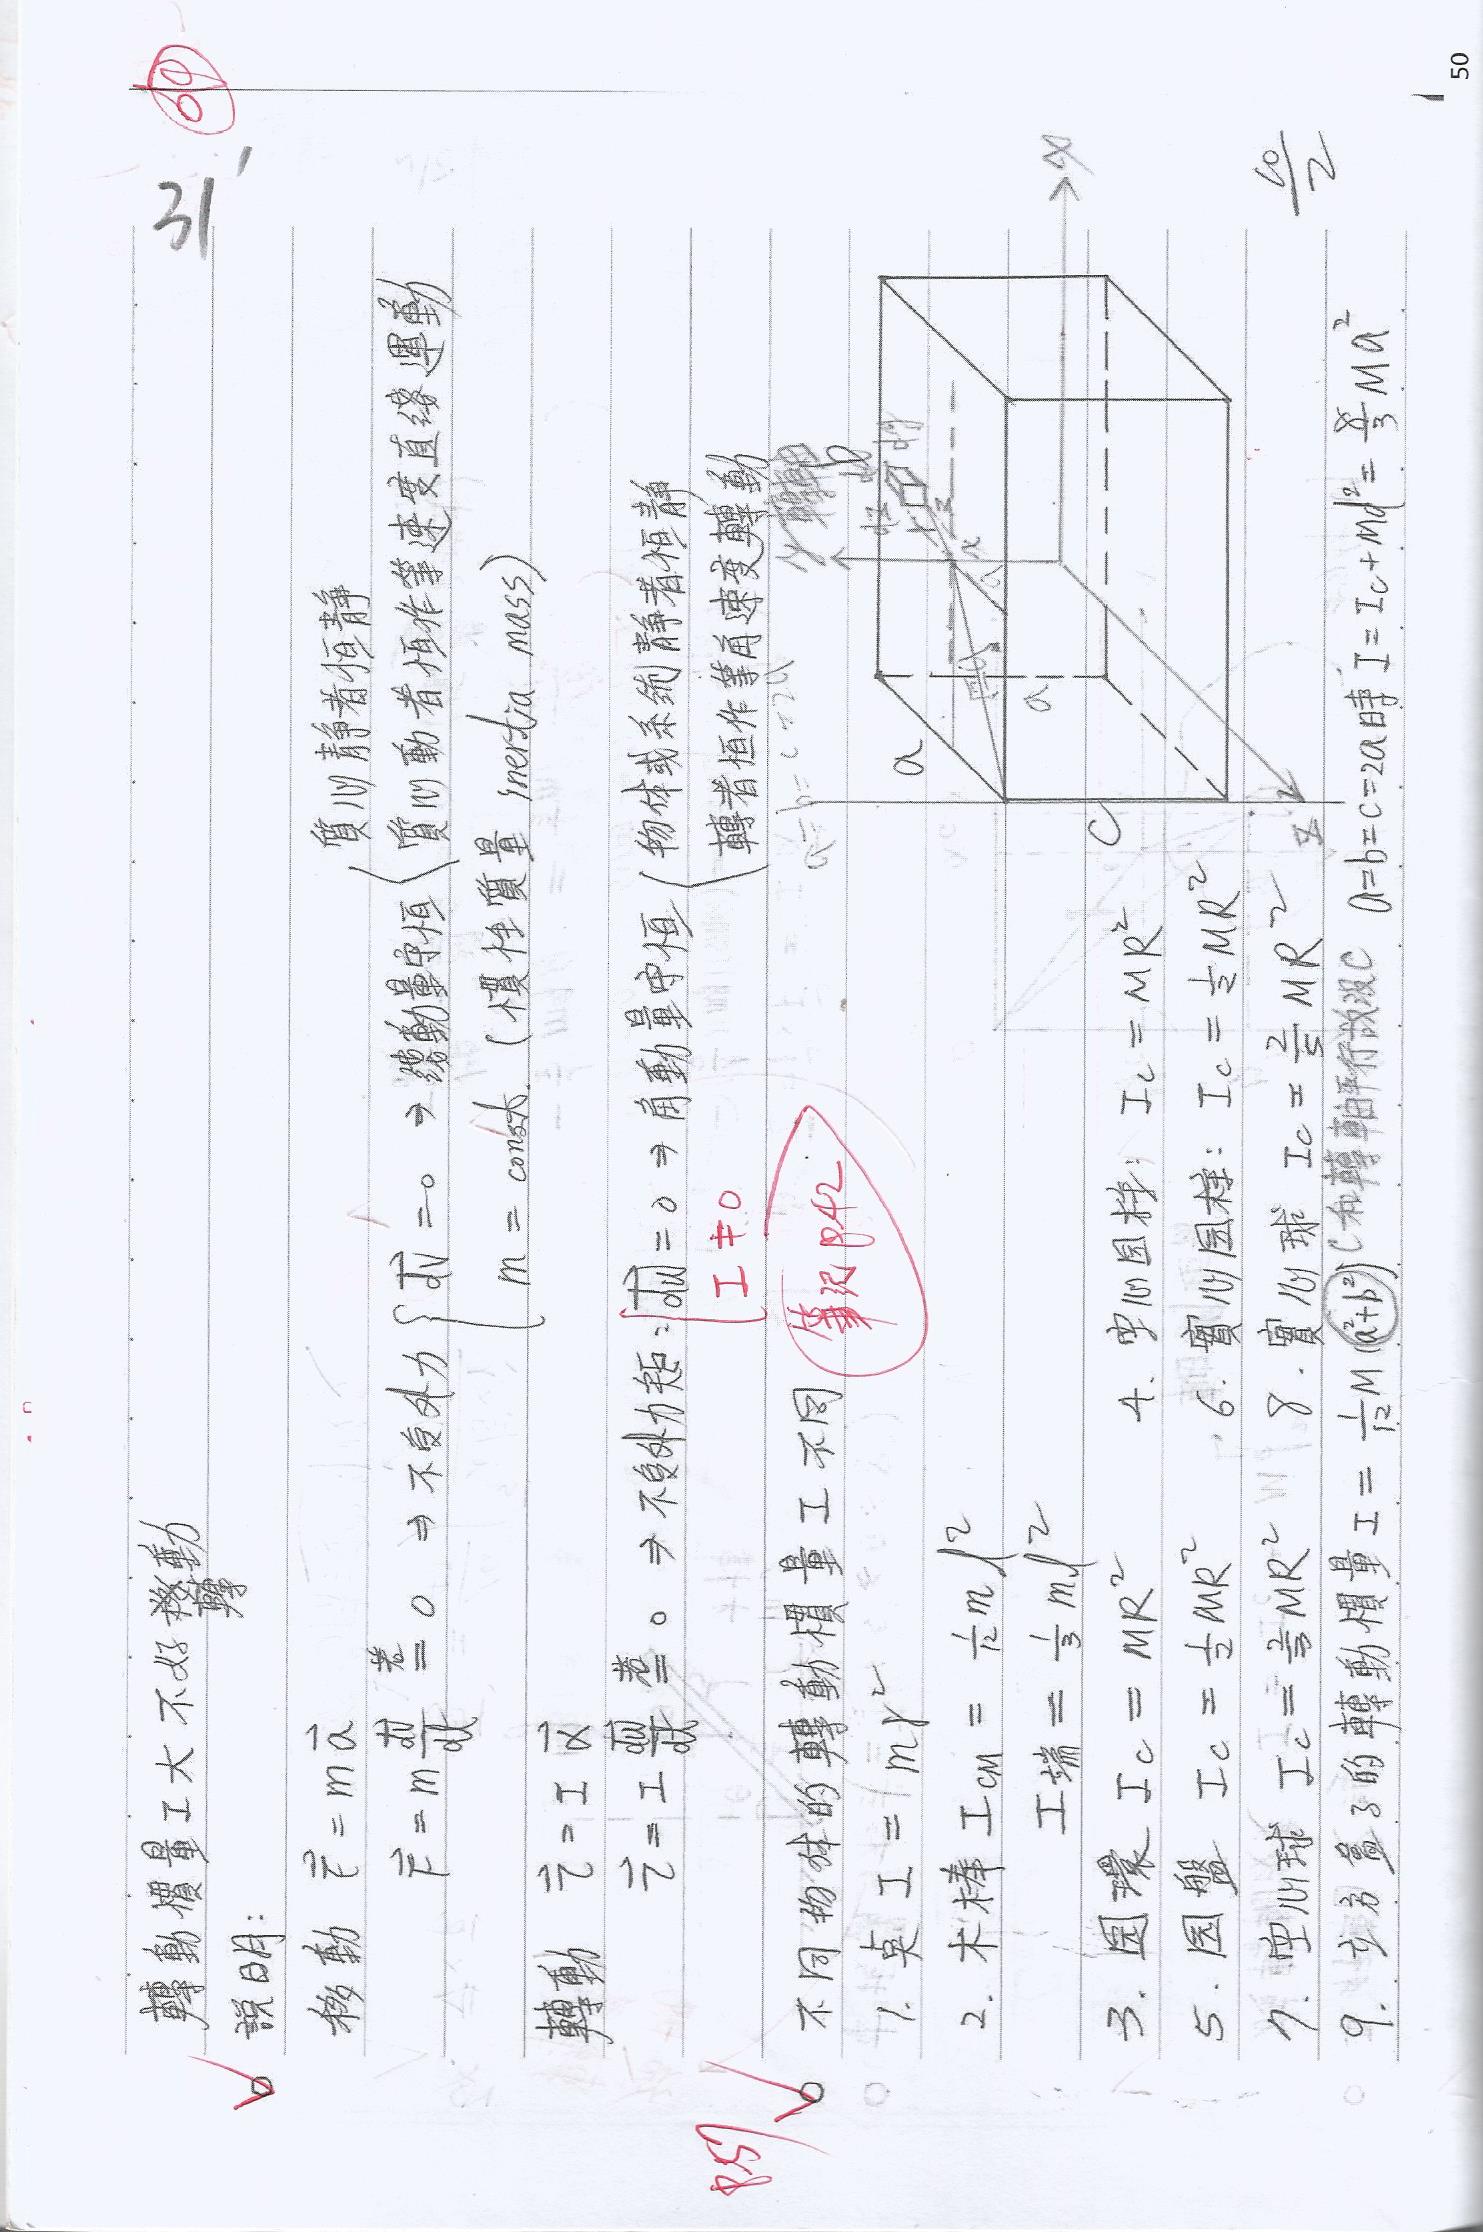 69
31'
轉動慣量I大不好移動
轉
說明:
移動 F = ma 質心靜者恒靜
F = m dv/dt 若= 0 ⇒ 不受外力 { dv = 0 → 動量守恒 { 質心動者恒作等速度直線運動
m = const. (慣性質量 inertia mass)
轉動 τ = Iα
τ = I dω/dt 若= 0 ⇒ 不受外力矩: { dω = 0 ⇒ 角動量守恒 { 物体或系統靜者恒靜
I ≠ 0 轉者恒作等角速度轉動
85
不同物体的轉動慣量I不同
筆記P42
a=b=c=2a
y 轉軸
1. 質 I = mr²
2. 木棒 I_CM = 1/12 ml²
I端 = 1/3 ml²
3. 圓環 I_C = MR² 4. 空心圓柱: I_C = MR²
5. 圓盤 I_C = 1/2 MR² 6. 實心圓柱: I_C = 1/2 MR²
7. 空心球 I_C = 2/3 MR² 8. 實心球 I_C = 2/5 MR²
9. 立方疊了的轉動慣量 I = 1/12 M(a²+b²) C和轉軸平行故沒C a=b=c=2a時 I = I_C + Md² = 8/3 Ma²
a
a
b
C
x
z
dy
dz
50